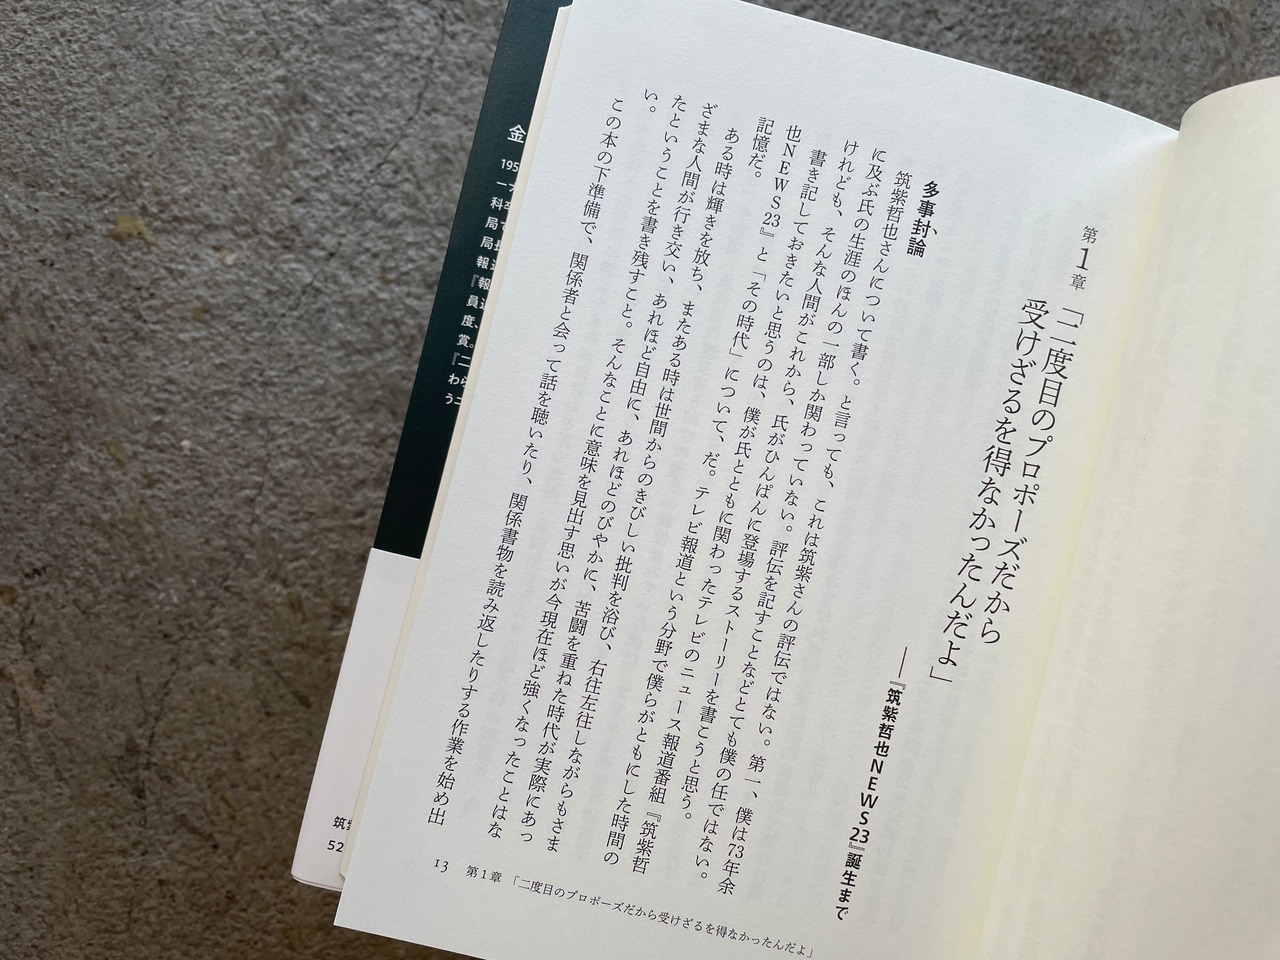 第1章
「二度目のプロポーズだから
受けざるを得なかったんだよ」
──『筑紫哲也NEWS23』誕生まで
多事封論
筑紫哲也さんについて書く。と言っても、これは筑紫さんの評伝ではない。第一、僕は73年余
に及ぶ氏の生涯のほんの一部しか関わっていない。評伝を記すことなどとても僕の任ではない。
けれども、そんな人間がこれから、氏がひんぱんに登場するストーリーを書こうと思う。
書き記しておきたいと思うのは、僕が氏とともに関わったテレビのニュース報道番組『筑紫哲
也NEWS23』と「その時代」について、だ。テレビ報道という分野で僕らがともにした時間の
記憶だ。
ある時は輝きを放ち、またある時は世間からのきびしい批判を浴び、右往左往しながらもさま
ざまな人間が行き交い、あれほど自由に、あれほどのびやかに、苦闘を重ねた時代が実際にあっ
たということを書き残すこと。そんなことに意味を見出す思いが今現在ほど強くなったことはな
い。
この本の下準備で、関係者と会って話を聴いたり、関係書物を読み返したりする作業を始め出
13 第1章 「二度目のプロポーズだから受けざるを得なかったんだよ」
金
195
科
局
局長
報
『報道
員
度、
賞。
『二
わら
うエ
筑紫
52